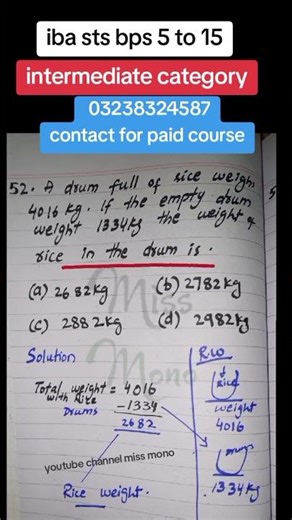 iba sts bps 5 to 15
intermediate category
03238324587
contact for paid course
52. A drum full of rice weighs
4016 kg. If the empty drum
weight 1334kg the weight of
rice in the drum is.
(a) 2682kg (b) 2782kg
(c) 2882kg (d) 2982kg
Miss
Mono
Solution
Total weight = 4016
with Rice
Drums
-1334
2682
Rice weight.
R.W
Rice
weight
4016
Drums
1334kg
youtube channel miss mono